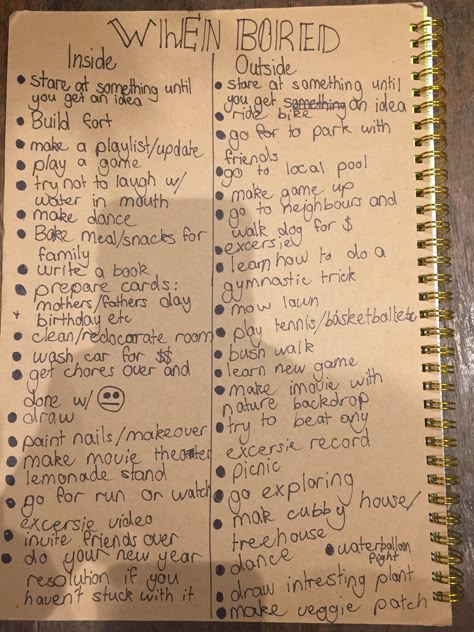 WHEN BORED
Inside
• stare at something until
you get an idea
• Build fort
• make a playlist/update
• play a game
• try not to laugh w/
water in mouth
• make dance
• Bake meal/snacks for
family
• write a book
• prepare cards:
mothers/fathers day
birthday etc
• clean/redocorrate room
• wash car for $$
• get chores over and
done w/ 😐
• draw
• paint nails/makeover
• make movie theater
• lemonade stand
• go for run or watch
excersie video
• invite friends over
• do your new year
resolution if you
haven't stuck with it
Outside
• stare at something until
you get something an idea
• ride bike
• go for to park with
friends
• go to local pool
• make game up
• go to neighbours and
walk dog for $
• excersie
• learn how to do a
gymnastic trick
• mow lawn
• play tennis/basketball etc
• bush walk
• learn new game
• make imovie with
nature backdrop
• try to beat any
excersie record
• picnic
• go exploring
• make cubby house/
treehouse
• dance
• waterballoon
fight
• draw intresting plant
• make veggie patch